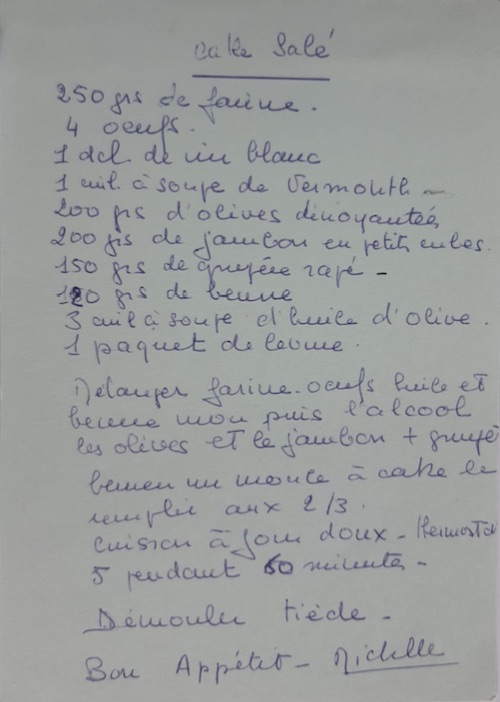 Cake Salé
250 grs de farine.
4 oeufs.
1 dcl de vin blanc
1 cuil. à soupe de Vermouth -
200 grs d'olives dénoyautées
200 grs de jambon en petits cubes.
150 grs de gruyère rapé -
120 grs de beurre
3 cuil à soupe d'huile d'olive.
1 paquet de levure.
Mélanger farine. oeufs huile et
beurre mou puis l'alcool
les olives et le jambon + gruyè
beurrer un moule à cake le
remplir aux 2/3.
Cuisson à four doux - thermostat
5 pendant 60 minutes -
Démouler tiède -
Bon Appétit - Michelle